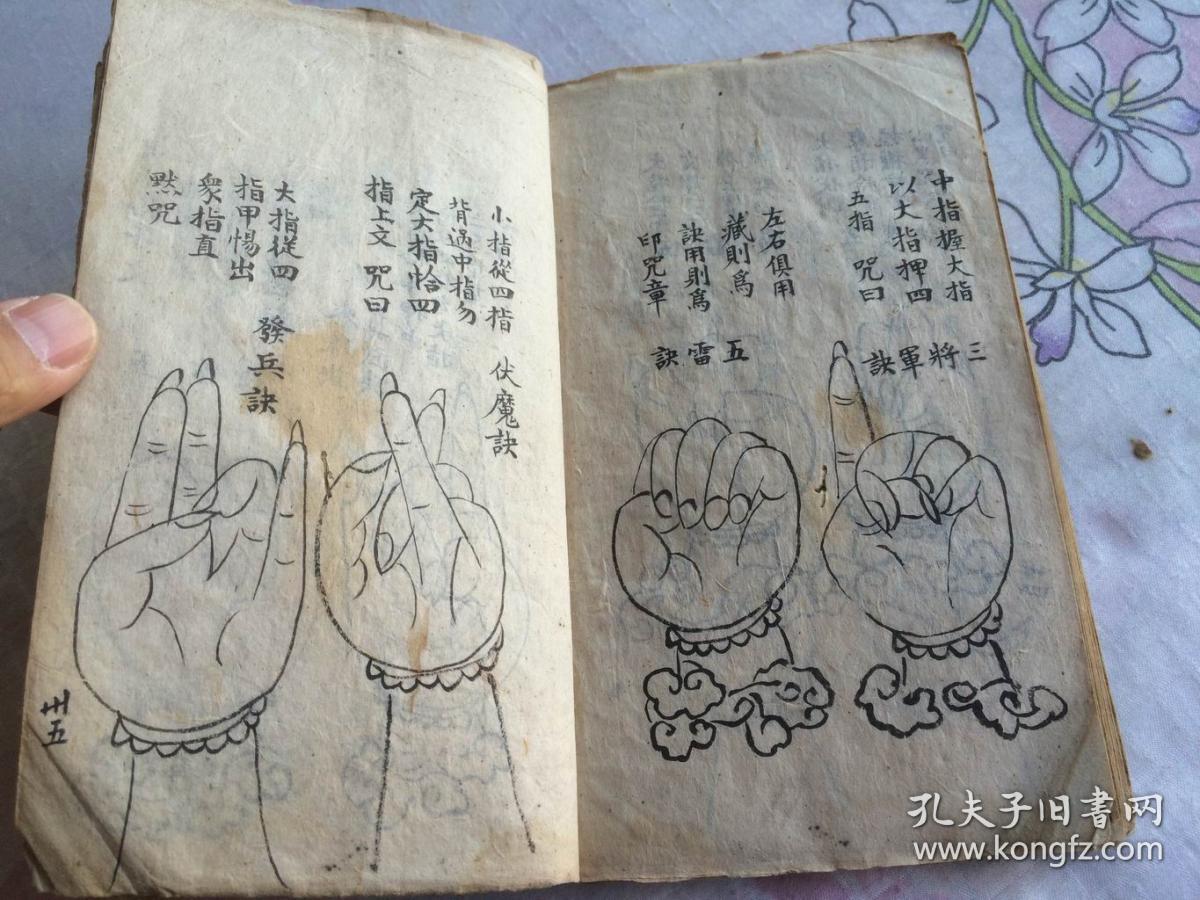 中指握大指
以大指押四
五指 咒曰
三將軍訣
左右俱用
藏則爲
訣用則爲
印咒章
五雷訣
小指從四指
背過中指勿
定大指恰四
指上文 咒曰
伏魔訣
大指從四
指甲惕出
衆指直
默咒
發兵訣
卅五
孔夫子旧書网
www.kongfz.com